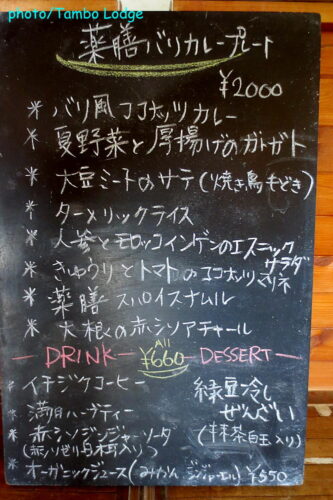 photo/Tambo Lodge
薬膳バリカレープレート
¥2000
* バリ風ココナッツカレー
* 夏野菜と厚揚げのガドガド
* 大豆ミートのサテ(焼き鳥もどき)
* ターメリックライス
* 人参とモロッコインゲンのエスニックサラダ
* きゅうりとトマトのココナッツマリネ
* 薬膳スパイスナムル
* 大根の赤シソアチャール
DRINK All ¥660 DESSERT
* イチジクコーヒー
* 満月ハーブティー
* 赤シソジンジャーソーダ
木耳入り)
* オーガニックジュース(みかん、ジンジャーエール) ¥550
緑豆冷し
ぜんざい
(抹茶白玉入り)